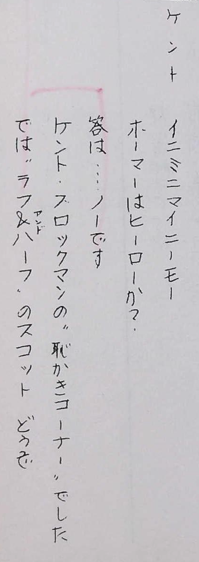 ケント　イニミニマイニーモー
ホーマーはヒーローか？
答は……ノーです
ケント・ブロックマンの〝恥かきコーナー〟でした
では〝ラフ&ハーフ〟のスコット　どうぞ
アンド